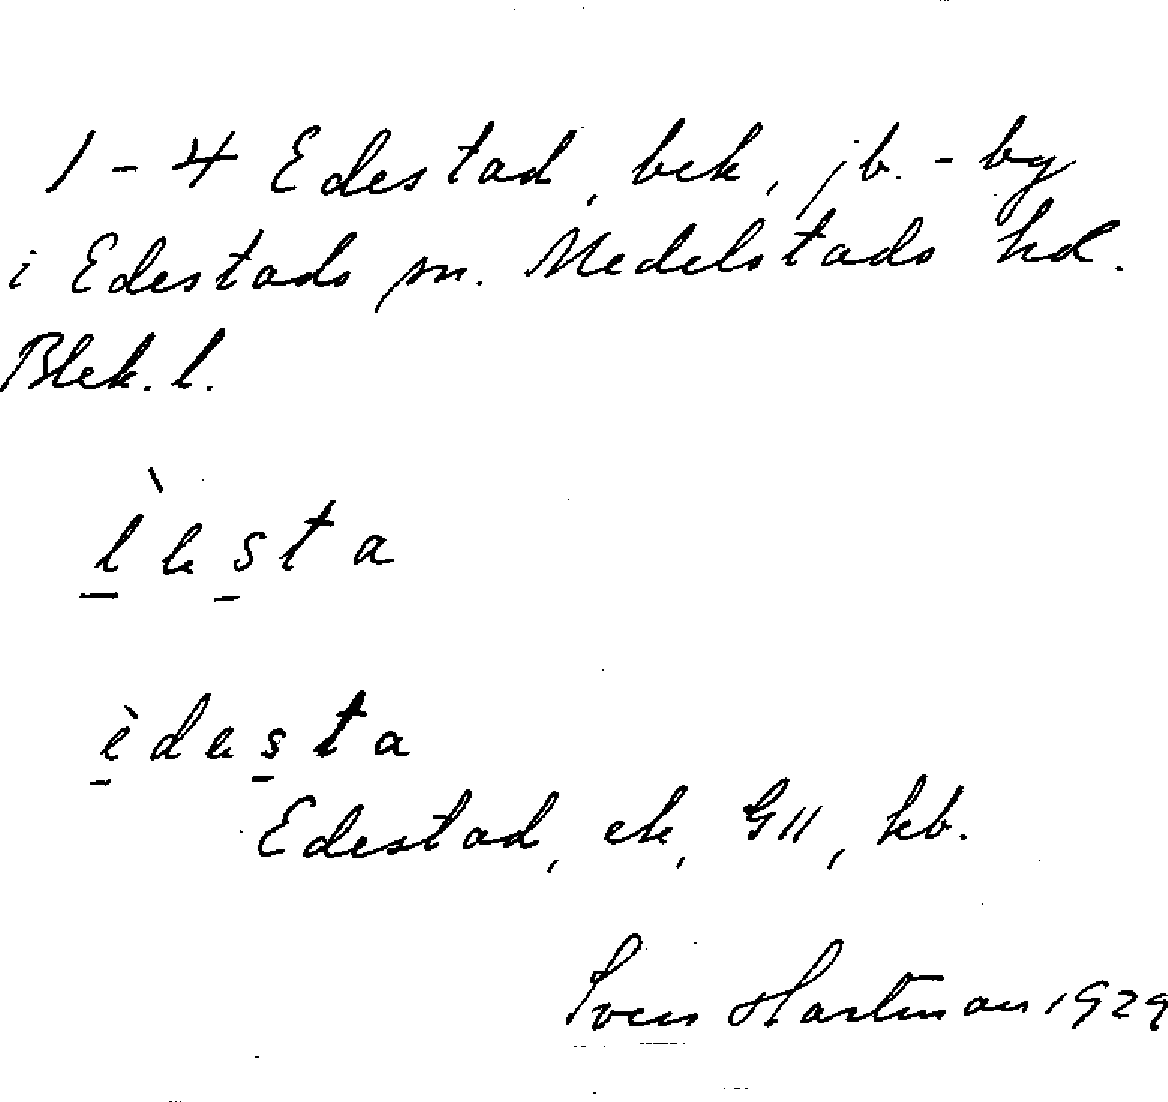 1-4 Edestad, bek, jb.-by
i Edestads sn. Medelstads hd.
Blek. l.
Edestad, ek, GII, kb.
Sven Hartman 1929